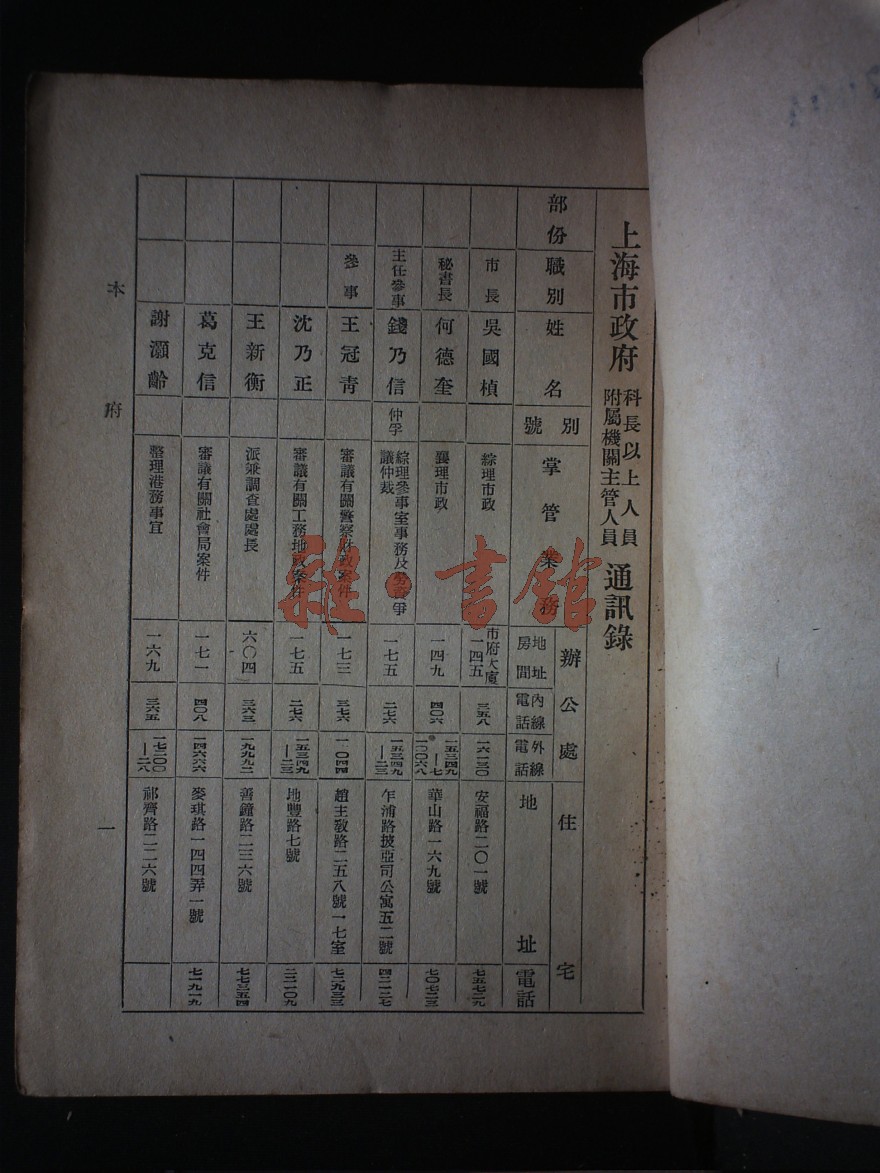 上海市政府 科長以上人員 附屬機關主管人員 通訊錄
部份 職別 姓名 別號 掌管業務 辦公處 地址 房間 內線電話 外線電話 住宅 地址 電話
市長 吳國楨 綜理市政 市府大廈 一四五 三五八 一六一三〇 安福路二〇一號 七五七二九
秘書長 何德奎 襄理市政 一四九 四〇六 一五三四九—七 一〇〇六八 華山路一六九號 七〇七二三
主任參事 錢乃信 仲孚 綜理參事室事務及勞資爭議仲裁 一七五 二七六 一五三四九—二三 乍浦路披亞司公寓五二號 四二一三七
參事 王冠青 審議有關警察財政案件 一七三 三七六 一一〇四四 趙主教路二五八號一七室 七二九三三
沈乃正 審議有關工務地政案件 一七五 二七六 一五三四九—二三 地豐路七號 二二一〇九
王新衡 派兼調查處處長 六〇四 三六三 一九九九二 善鐘路二三六號 七七三五四
葛克信 審議有關社會局案件 一七一 四〇八 一四六六六 麥琪路一四四弄一號 七一九一九
謝灝齡 整理港務事宜 一六九 三六五 一七二〇〇—二八 祁齊路二二六號
本府 一
雜·書館